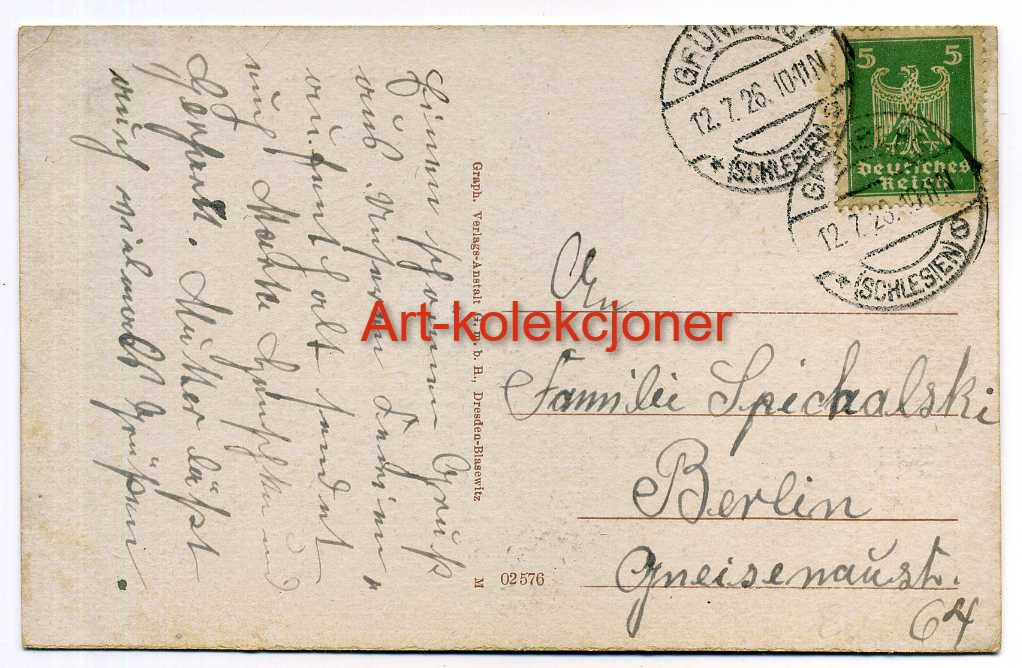 Einen schönen Gruß
aus
aufenthalt sendet
und
Mutter läßt
auch vielmals Grüßen.
Graph. Verlags-Anstalt G. m. b. H., Dresden-Blasewitz
M 02576
GRÜNBERG
12.7.26.10-11N
* (SCHLESIEN)
GRÜNBERG
12.7.26.10-11N
* (SCHLESIEN)
5 5
Deutsches
Reich
An
Art-kolekcjoner
Familie Spichalski
Berlin
Gneisenaustr.
64